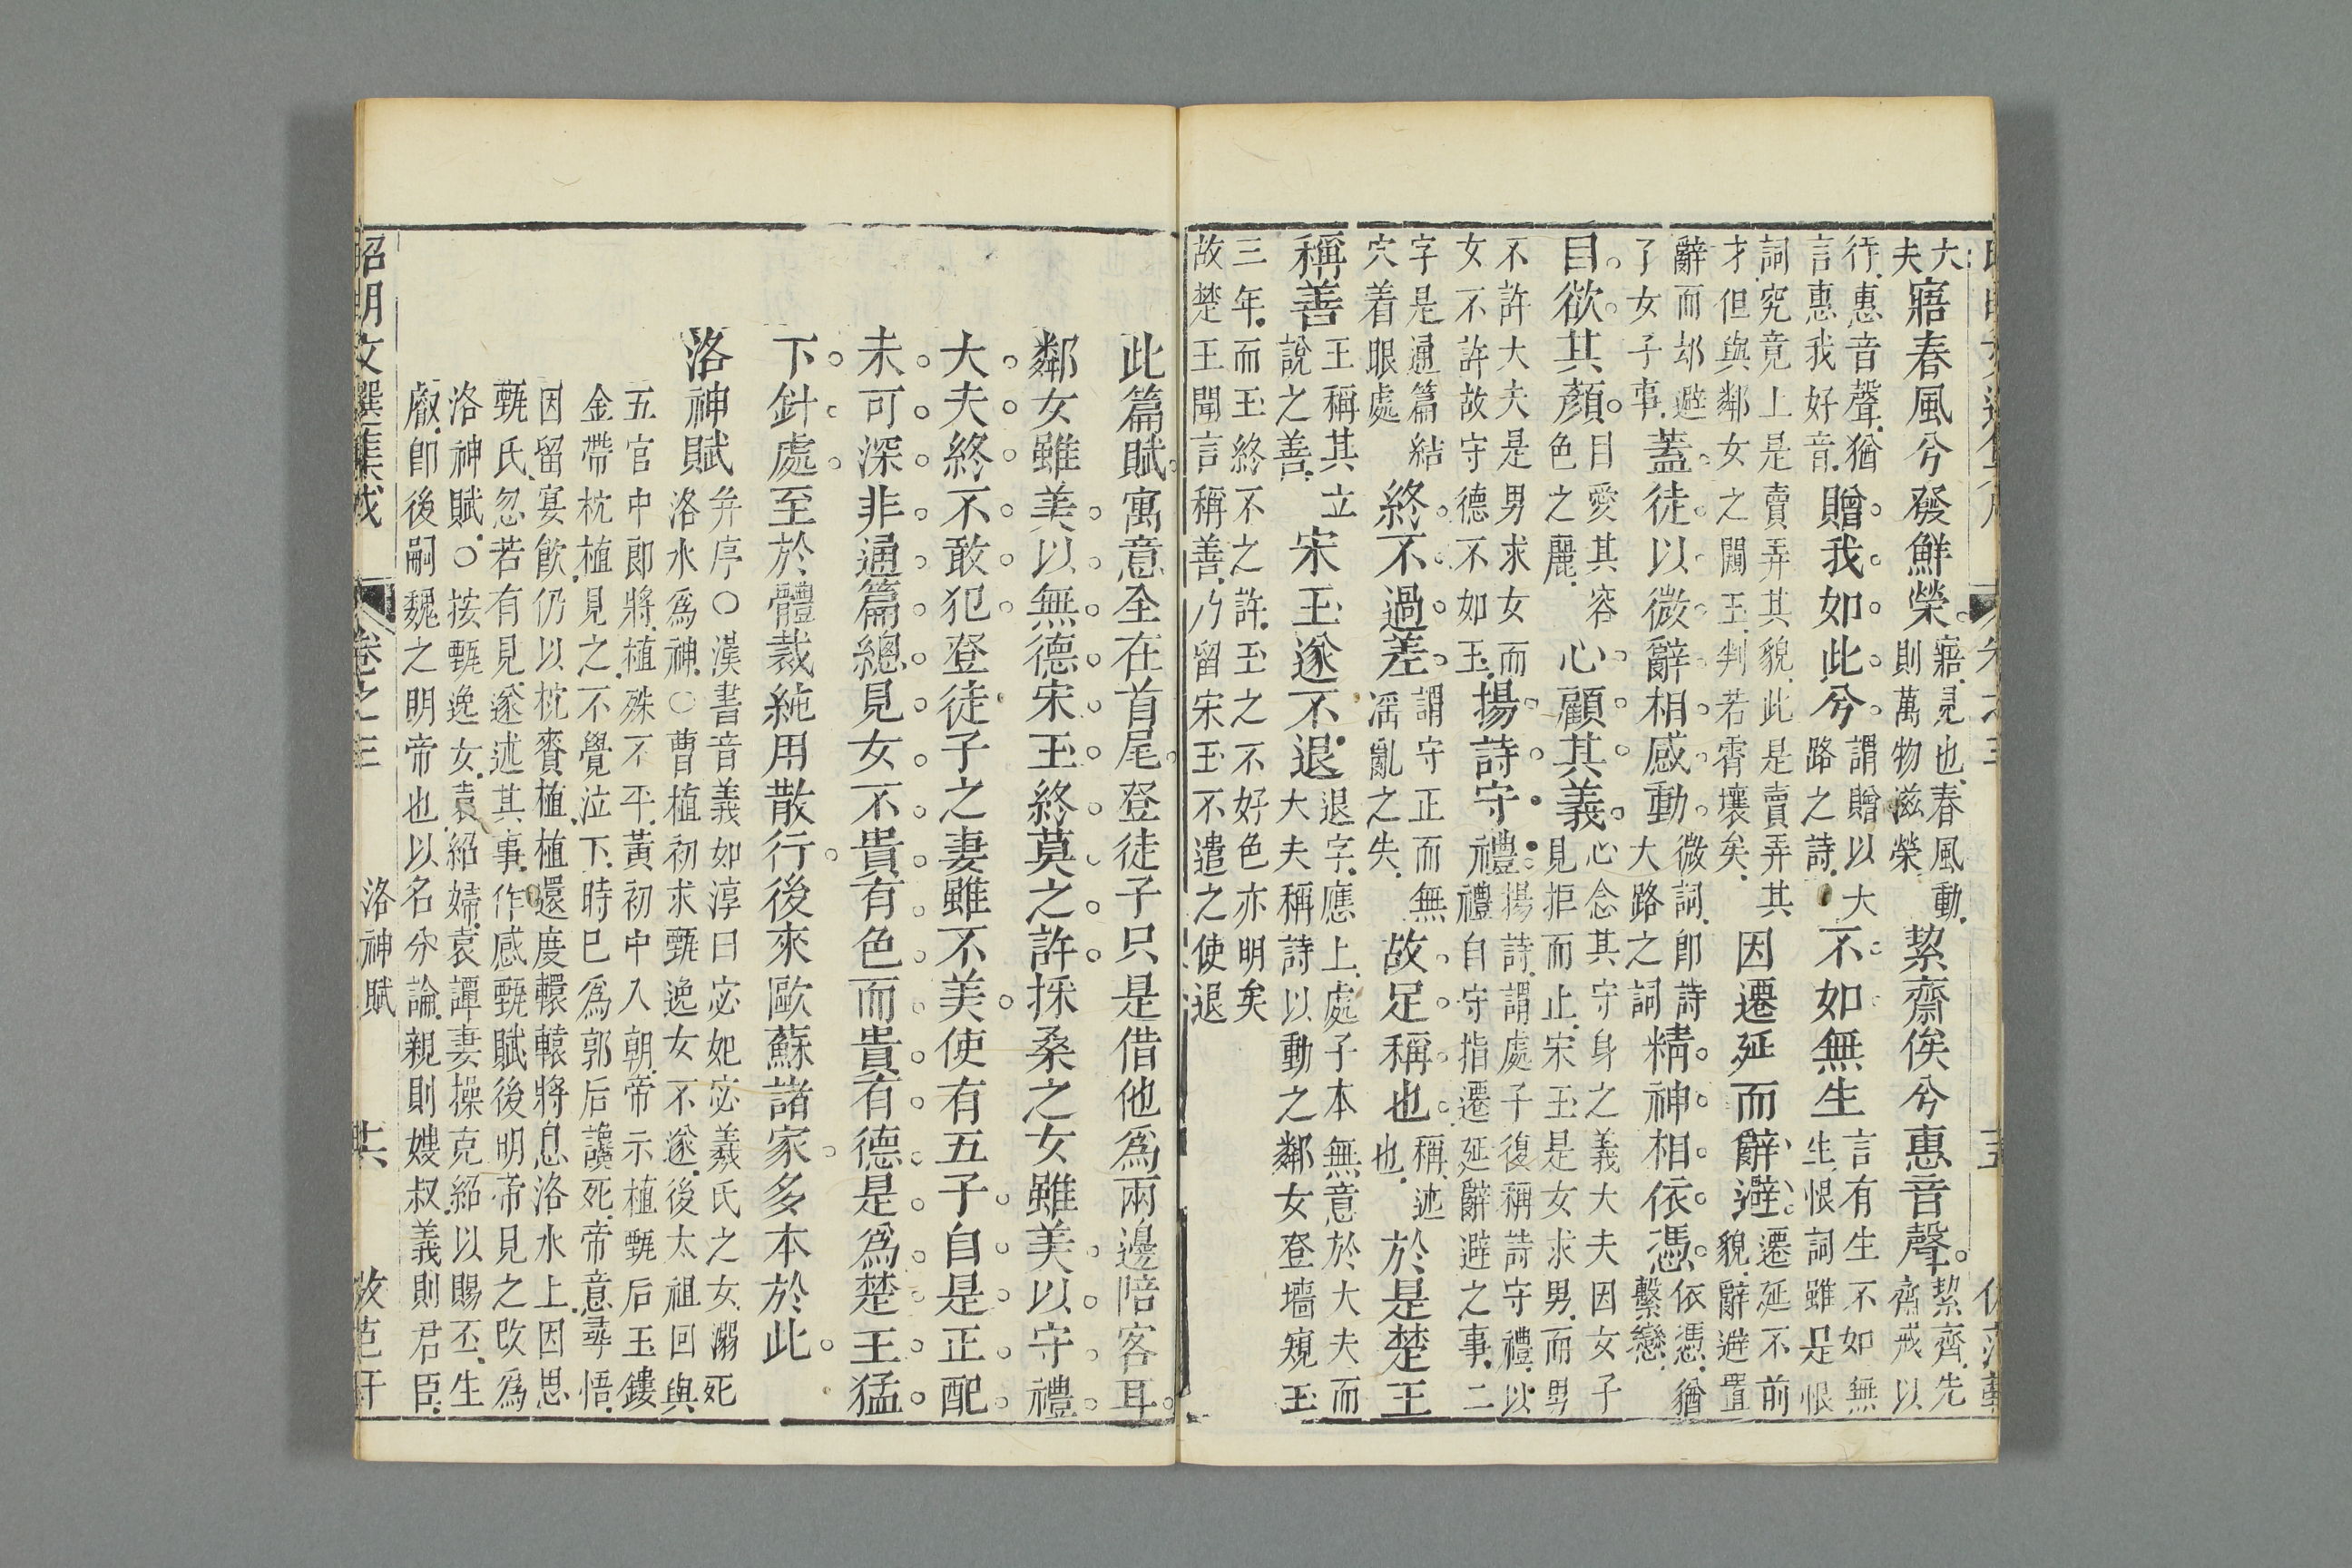 大夫寤春風兮發鮮榮。寤見也春風動則萬物滋榮絜齋俟兮惠音聲。絜齊先齋戒以
行惠音聲猶言惠我好音贈我如此兮謂贈以大路之詩不如無生言有生不如無生恨詞雖是恨
詞究竟上是賣弄其貌此是賣弄其才但與鄰女之闚玉判若霄壤矣因遷延而辭避遷延不前貌辭避置
辭而却避了女子事蓋徒以微辭相感動微詞即詩大路之詞精神相依憑依憑猶繫戀
目欲其顏目愛其容色之麗心顧其義心念其守身之義大夫因女子見拒而止宋玉是女求男而男
不許大夫是男求女而女不許故守德不如玉揚詩守禮揚詩謂處子復稱詩守禮以禮自守指遷延辭避之事二
字是通篇結穴着眼處終不過差謂守正而無淫亂之失故足稱也稱述也於是楚王
稱善王稱其說之善立宋玉遂不退退字應上處子本無意於大夫而大夫稱詩以動之鄰女登墻窺玉
三年而玉終不之許玉之不好色亦明矣故楚王聞言稱善乃留宋玉不遣之使退
此篇賦寓意全在首尾登徒子只是借他為兩邊陪客耳
鄰女雖美以無德宋玉終莫之許採桑之女雖美以守禮
大夫終不敢犯登徒子之妻雖不美使有五子自是正配
未可深非通篇總見女不貴有色而貴有德是為楚王猛
下針處至於體裁純用散行後來歐蘇諸家多本於此
洛神賦并序○漢書音義如淳曰宓妃宓羲氏之女溺死洛水為神○曹植初求甄逸女不遂後太祖回與
五官中郎將植殊不平黃初中入朝帝示植甄后玉鏤金帶枕植見之不覺泣下時已為郭后讒死帝意尋悟
因留宴飲仍以枕賚植植還度轘轅將息洛水上因思甄氏忽若有見遂述其事作感甄賦後明帝見之改為
洛神賦○按甄逸女袁紹婦袁譚妻操克紹以賜丕生叡即後嗣魏之明帝也以名分論親則嫂叔義則君臣
昭明文選集成 卷之三 洛神賦